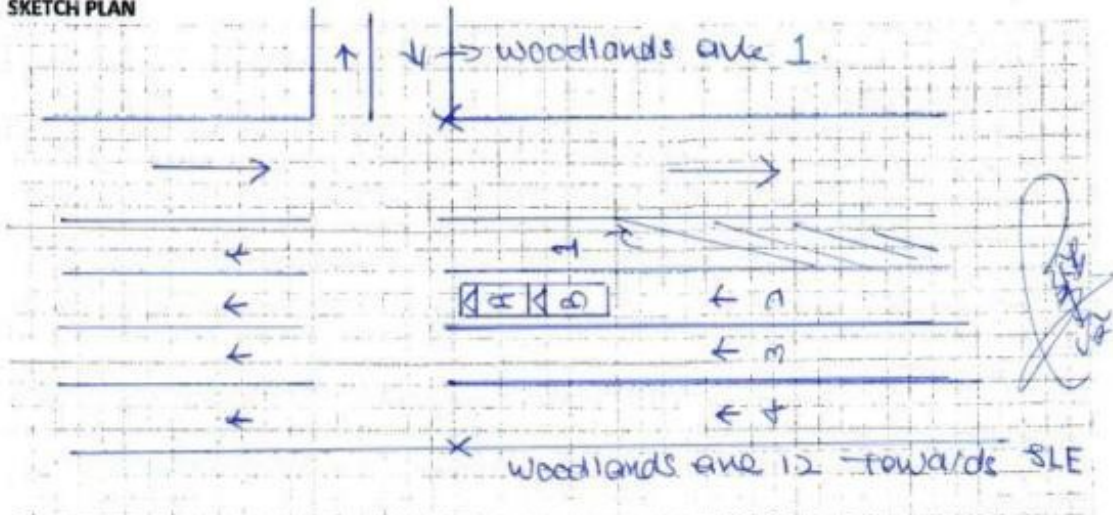 SKETCH PLAN
woodlands ave 1.
1
A B
2
3
4
woodlands ave 12 towards SLE